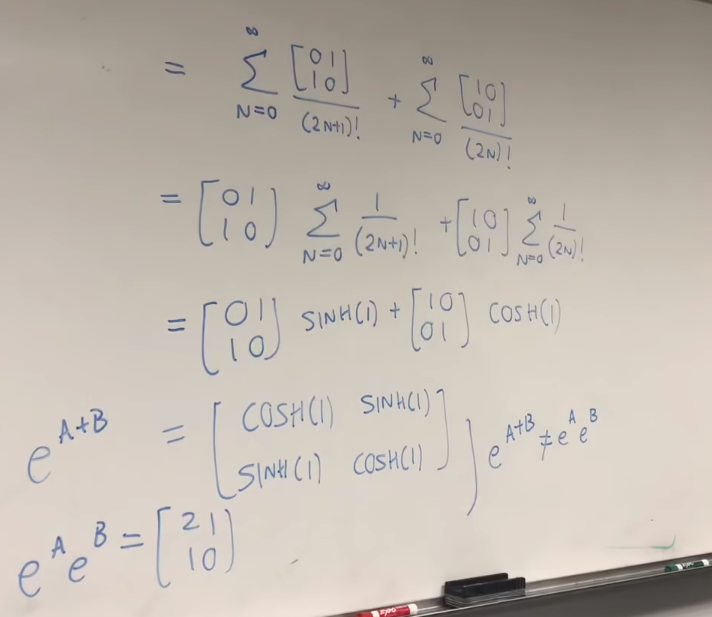 = ∞∑N=0 [0 1; 1 0]/(2N+1)! + ∞∑N=0 [1 0; 0 1]/(2N)!
= [0 1; 1 0] ∞∑N=0 1/(2N+1)! + [1 0; 0 1] ∞∑N=0 1/(2N)!
= [0 1; 1 0] SINH(1) + [1 0; 0 1] COSH(1)
e^A+B = [COSH(1) SINH(1); SINH(1) COSH(1)] ] e^A+B ≠ e^A e^B
e^A e^B = [2 1; 1 0]
EXPO